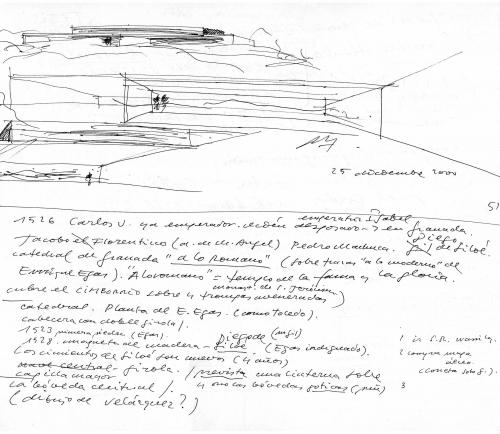 25 diciembre 2000
51
emperatriz Isabel
1526 Carlos V. ya emperador. recién desposorio → en Granada.
Diego
Jacobo el Florentino (a. de M. Angel) Pedro Machuca. Gil de Siloé.
catedral de Granada "a lo romano" (sobre trazas "a lo moderno" de
Enrique Egas). "A lo romano" = templo de la fama y la gloria.
monast. de S. Jerónimo
cubre el cimborrio sobre 4 trompas aveneradas)
catedral. Planta de E. Egas. (como Toledo).
cabecera con doble girola/.
1523 primera piedra (Egas)
Diego de
1528. maqueta de madera - Siloé (Egas indignado).
Los cimientos de Siloé son nuevos (4 años)
central - girola. / prevista una linterna sobre
capilla mayor
la bóveda central /. 4 bóvedas góticas
(dibujo de Velázquez?)
1
2 compra
3